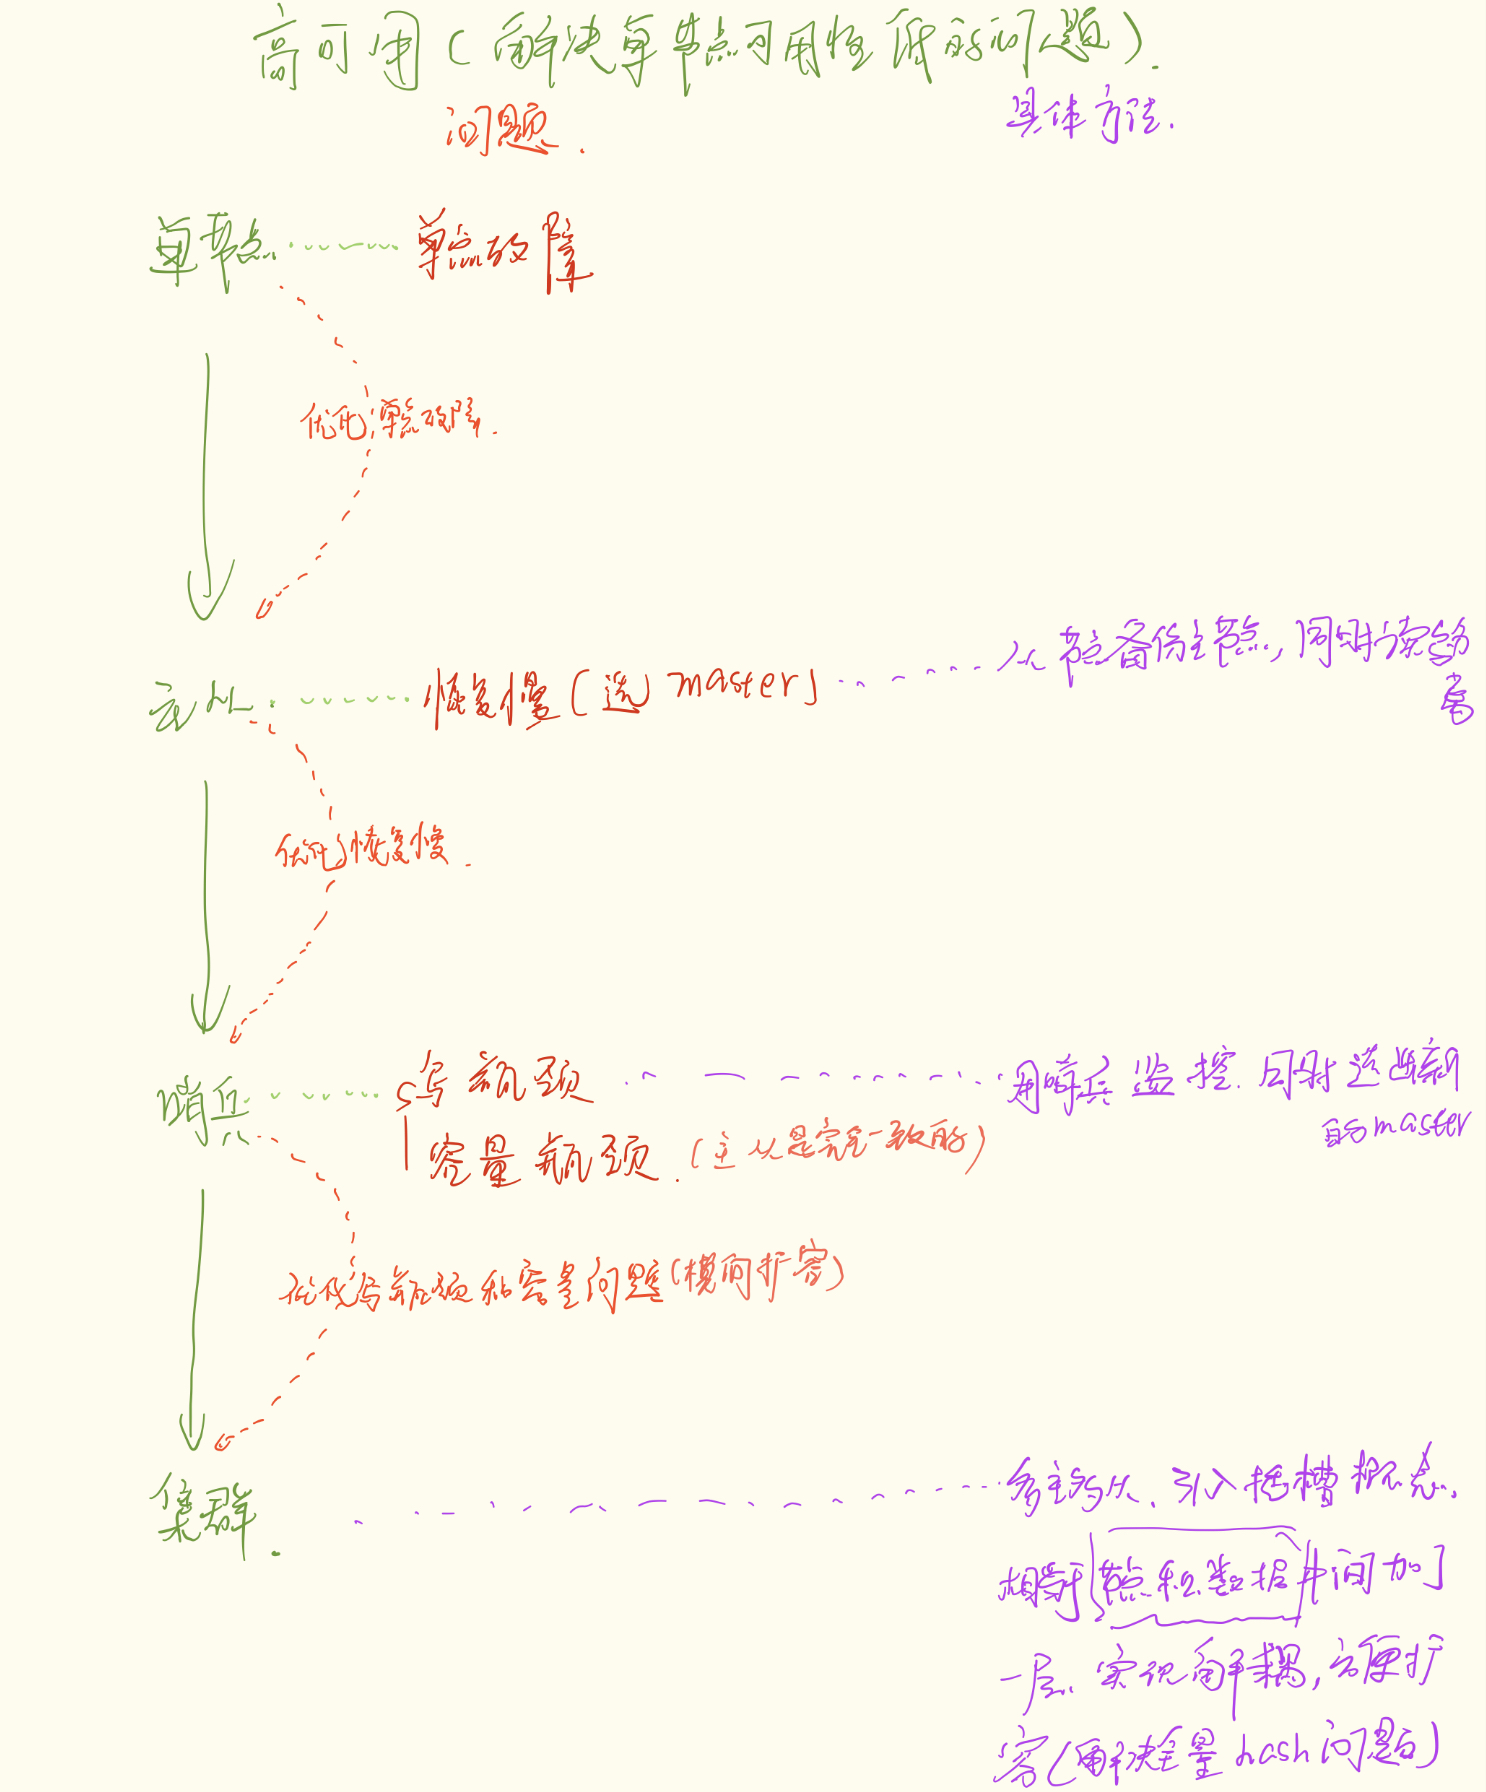 高可用(解决单节点可用性低的问题).
问题.
具体方法.
单节点
单点故障
优化单点故障.
主从
恢复慢(选master)
从节点备份主节点,同时读的
优化恢复慢.
哨兵
写瓶颈
用哨兵监控.同时选出新
的master
容量瓶颈.(主从是完全一致的)
优化写瓶颈和容量问题(横向扩容)
集群.
多主多从、引入插槽概念,
相当于节点和数据中间加了
一层、实现解耦,方便扩
容(解决全量hash问题)